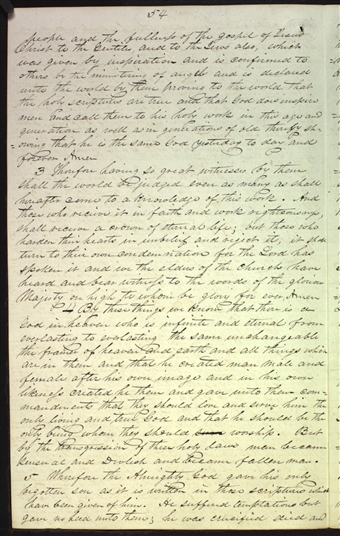 54
people and the fullness of the gospel of Jesus
Christ to the Gentiles and to the Jews also, which
was given by inspiration and is confirmed to
others by the ministering of angels and is declared
unto the world by them proving to the world that
the holy scriptures are true and that God does inspire
men and call them to his holy work in this age and
generation as well as in generations of old thereby sh-
owing that he is the same God yesterday to day and
forever Amen
3 Therefore having so great witnesses by them
shall the world be judged even as many as shall
hereafter come to a knowledge of this work. And
those who receive it in faith and work righteousness,
shall receive a crown of eternal life; but those who
harden their hearts in unbelief and reject it, it shall
turn to their own condemnation for the Lord has
spoken it and we the elders of the church have
heard and bear witness to the words of the glorious
Majesty on high to whom be glory for ever Amen
4 By these things we know that there is a
God in heaven who is infinite and eternal from
everlasting to everlasting the same unchangeable
the framer of heaven and earth and all things which
are in them and that he created man male and
female after his own image and in his own
likeness created he them and gave unto them com-
mandments that they should love and serve him the
only living and true God and that he should be the
only being whom they should worship. But
by the transgression of these holy laws man became
sensual and Devlish and became fallen man.
5 Therefore the Almighty God gave his only
begotten son as it is written in those scriptures which
have been given of him. He suffered temptations but
gave no heed unto them; he was crucified died and